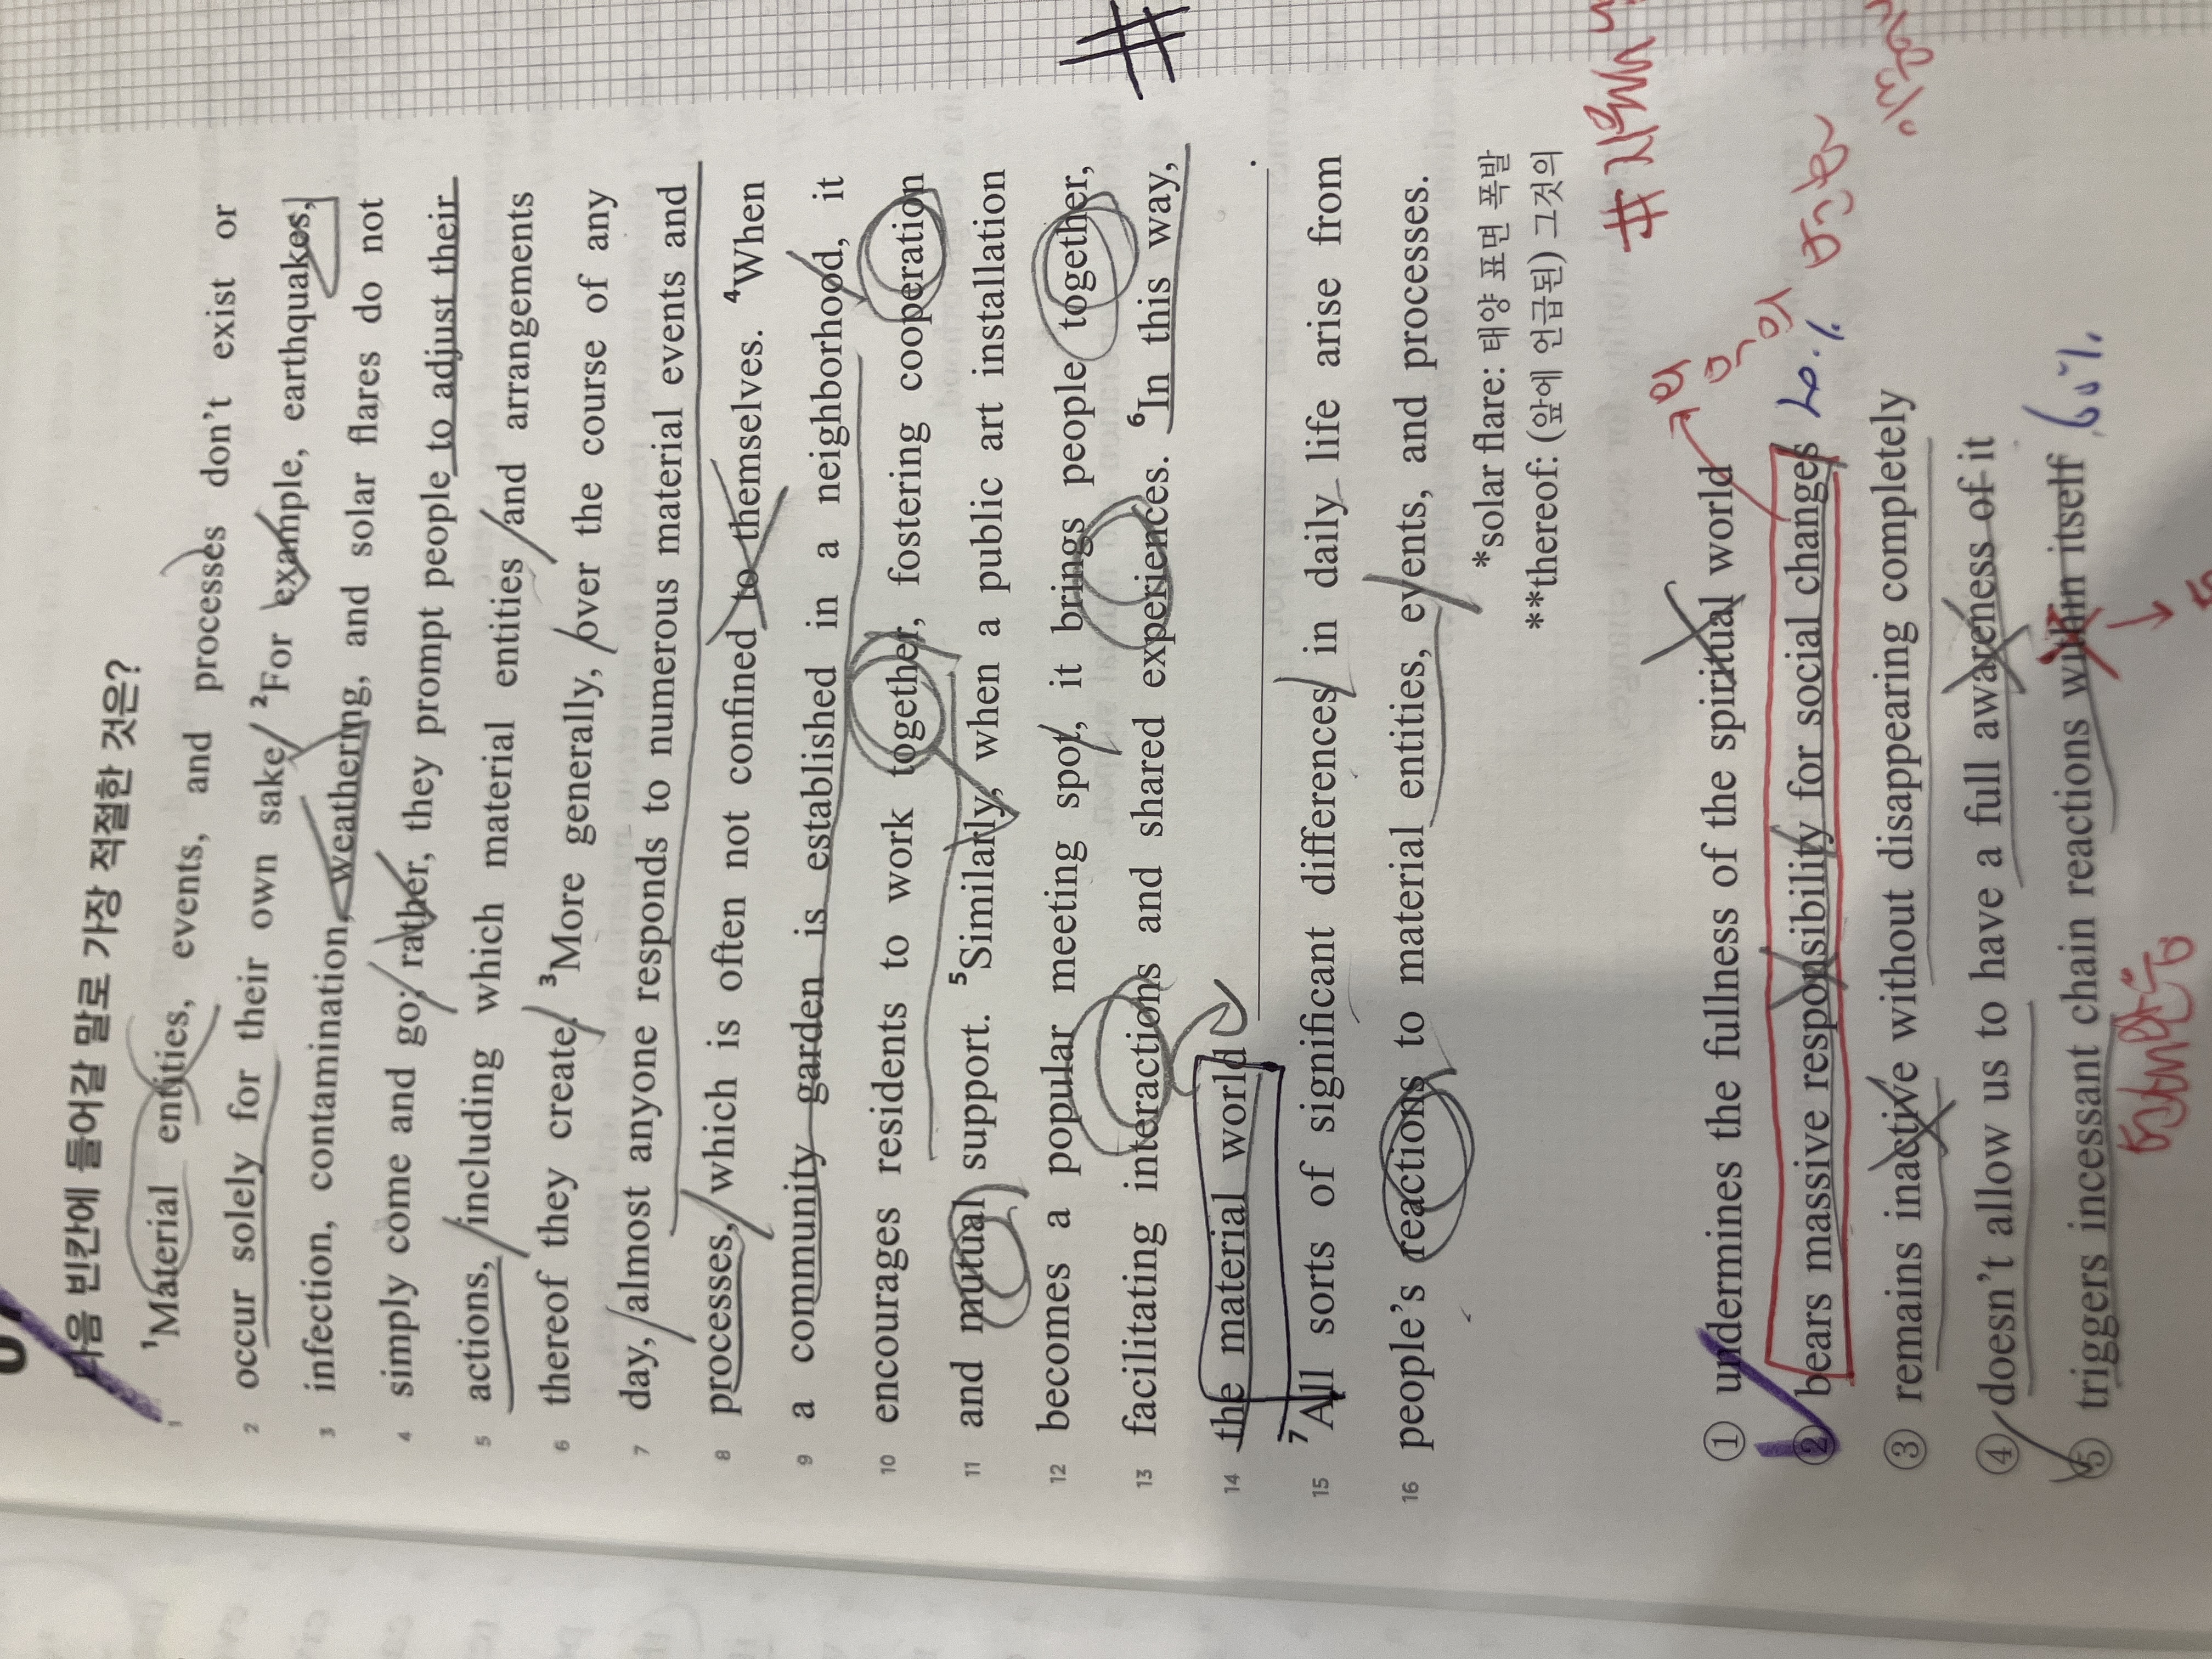 다음 빈칸에 들어갈 말로 가장 적절한 것은?
1 ¹Material entities, events, and processes don't exist or
2 occur solely for their own sake. ²For example, earthquakes,
3 infection, contamination, weathering, and solar flares do not
4 simply come and go; rather, they prompt people to adjust their
5 actions, including which material entities and arrangements
6 thereof they create. ³More generally, over the course of any
7 day, almost anyone responds to numerous material events and
8 processes, which is often not confined to themselves. ⁴When
9 a community garden is established in a neighborhood, it
10 encourages residents to work together, fostering cooperation
11 and mutual support. ⁵Similarly, when a public art installation
12 becomes a popular meeting spot, it brings people together,
13 facilitating interactions and shared experiences. ⁶In this way,
14 the material world ____________.
15 ⁷All sorts of significant differences in daily life arise from
16 people's reactions to material entities, events, and processes.
*solar flare: 태양 표면 폭발
**thereof: (앞에 언급된) 그것의
① undermines the fullness of the spiritual world
② bears massive responsibility for social changes 20%
③ remains inactive without disappearing completely
④ doesn't allow us to have a full awareness of it
⑤ triggers incessant chain reactions within itself 60%